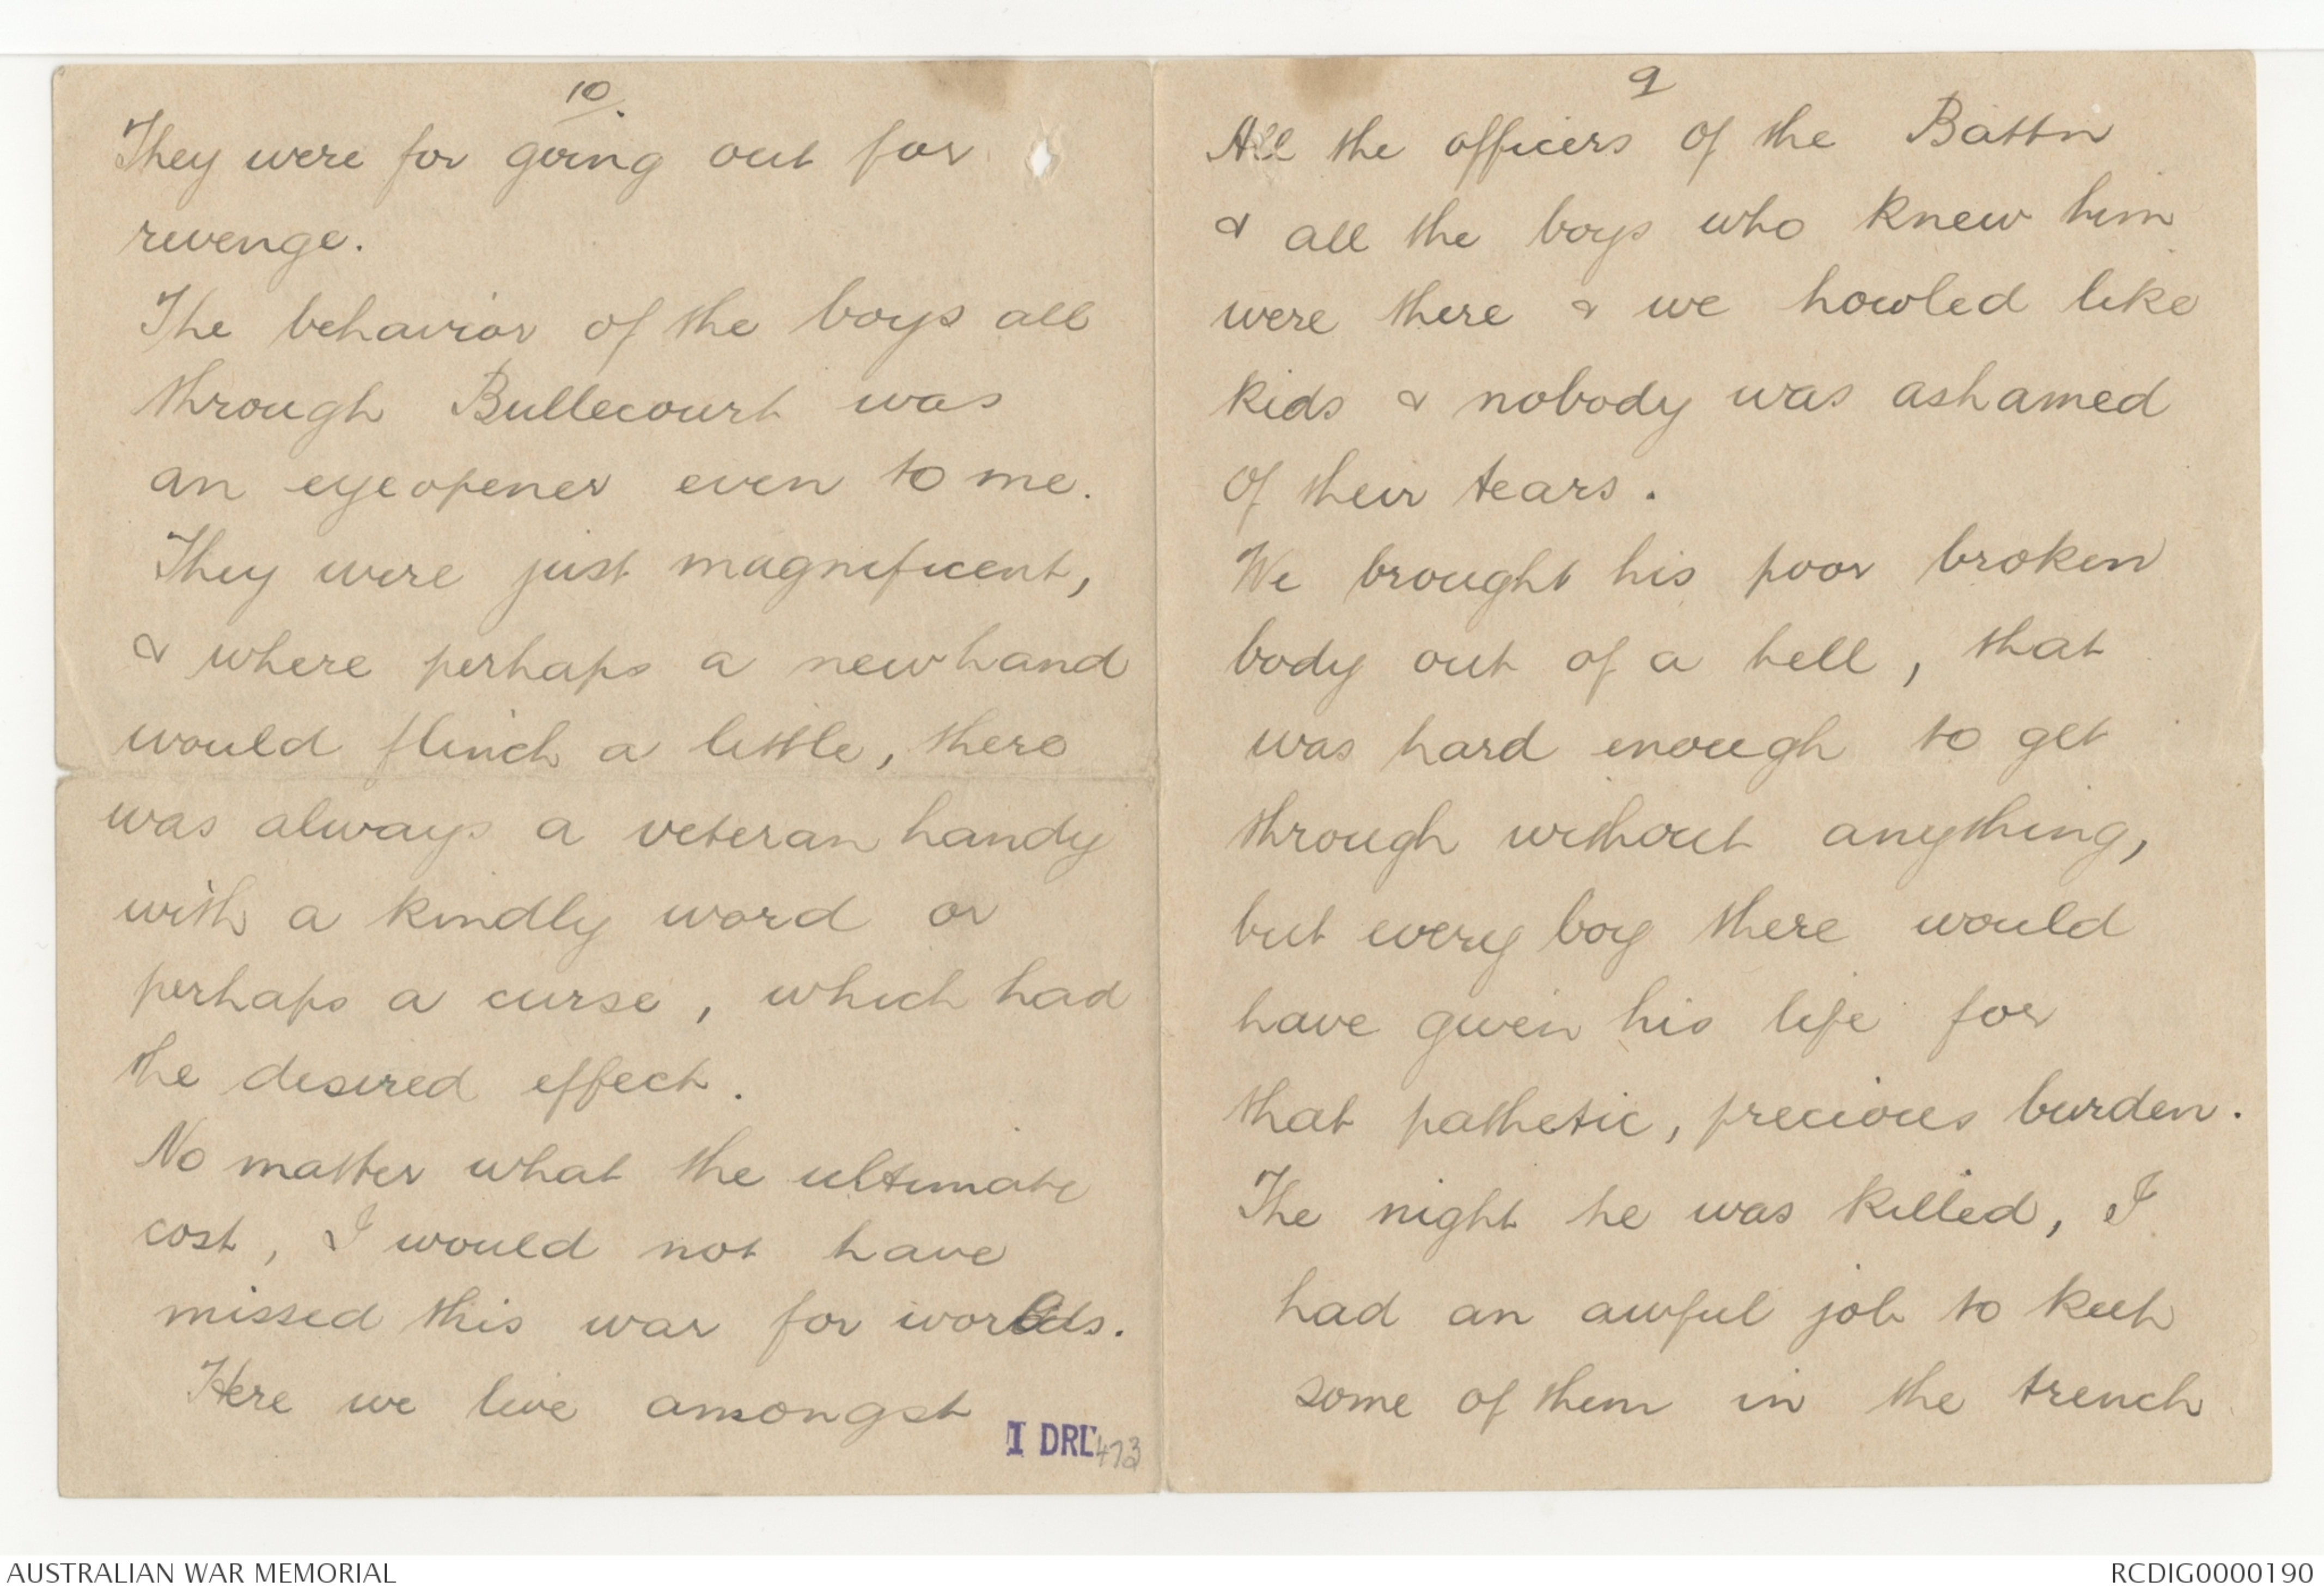 10.
They were for going out for
revenge.
The behavior of the boys all
through Bullecourt was
an eyeopener even to me.
They were just magnificent,
& where perhaps a new hand
would flinch a little, there
was always a veteran handy
with a kindly word or
perhaps a curse, which had
the desired effect.
No matter what the ultimate
cost, I would not have
missed this war for worlds.
Here we live amongst
I DRL 473
9
All the officers of the Battn
& all the boys who knew him
were there & we howled like
kids & nobody was ashamed
of their tears.
We brought his poor broken
body out of a hell, that
was hard enough to get
through without anything,
but every boy there would
have given his life for
that pathetic, precious burden.
The night he was killed, I
had an awful job to keep
some of them in the trench
AUSTRALIAN WAR MEMORIAL
RCDIG0000190